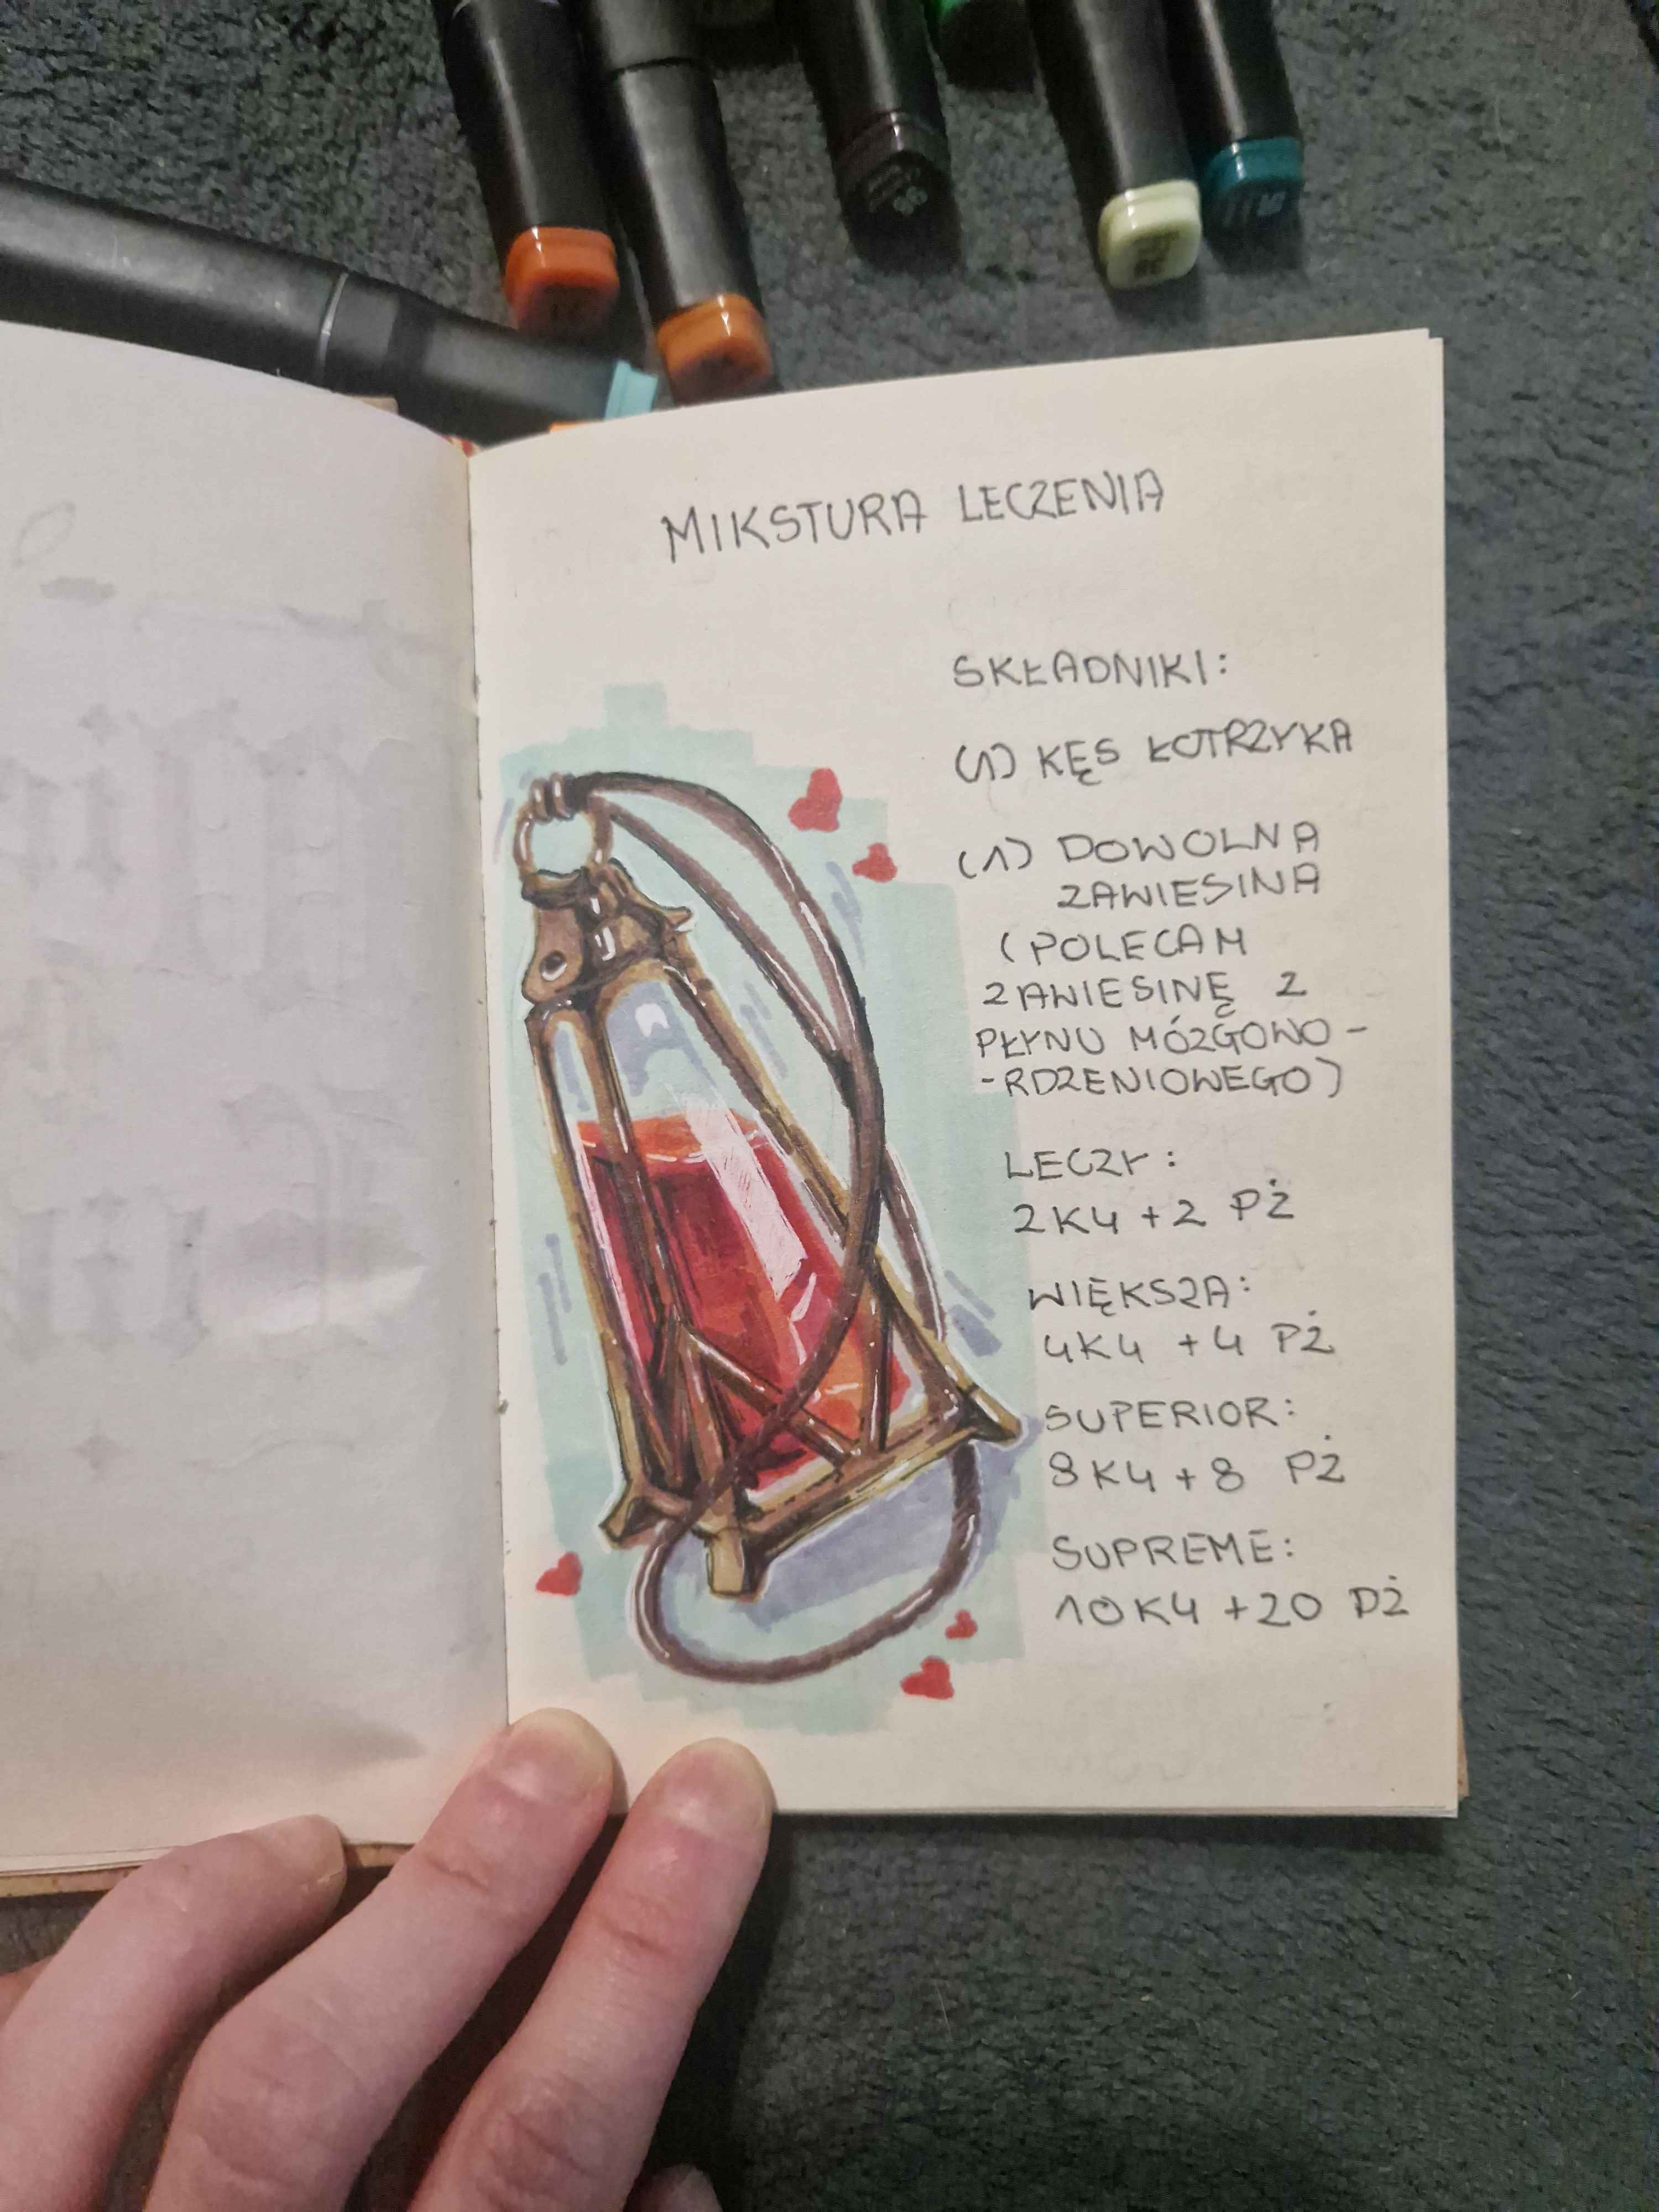 MIKSTURA LECZENIA
SKŁADNIKI:
(1) KĘS ŁOTRZYKA
(1) DOWOLNA
ZAWIESINA
(POLECAM
ZAWIESINĘ Z
PŁYNU MÓZGOWO-
-RDZENIOWEGO)
LECZY:
2K4 +2 PŻ
WIĘKSZA:
4K4 +4 PŻ
SUPERIOR:
8K4 +8 PŻ
SUPREME:
10K4 +20 PŻ